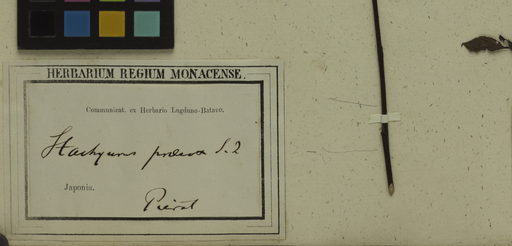 HERBARIUM REGIUM MONACENSE.
Communicat. ex Herbario Lugduno-Batavo.
Stachyurus praecox S. Z
Japonia.
Pierot